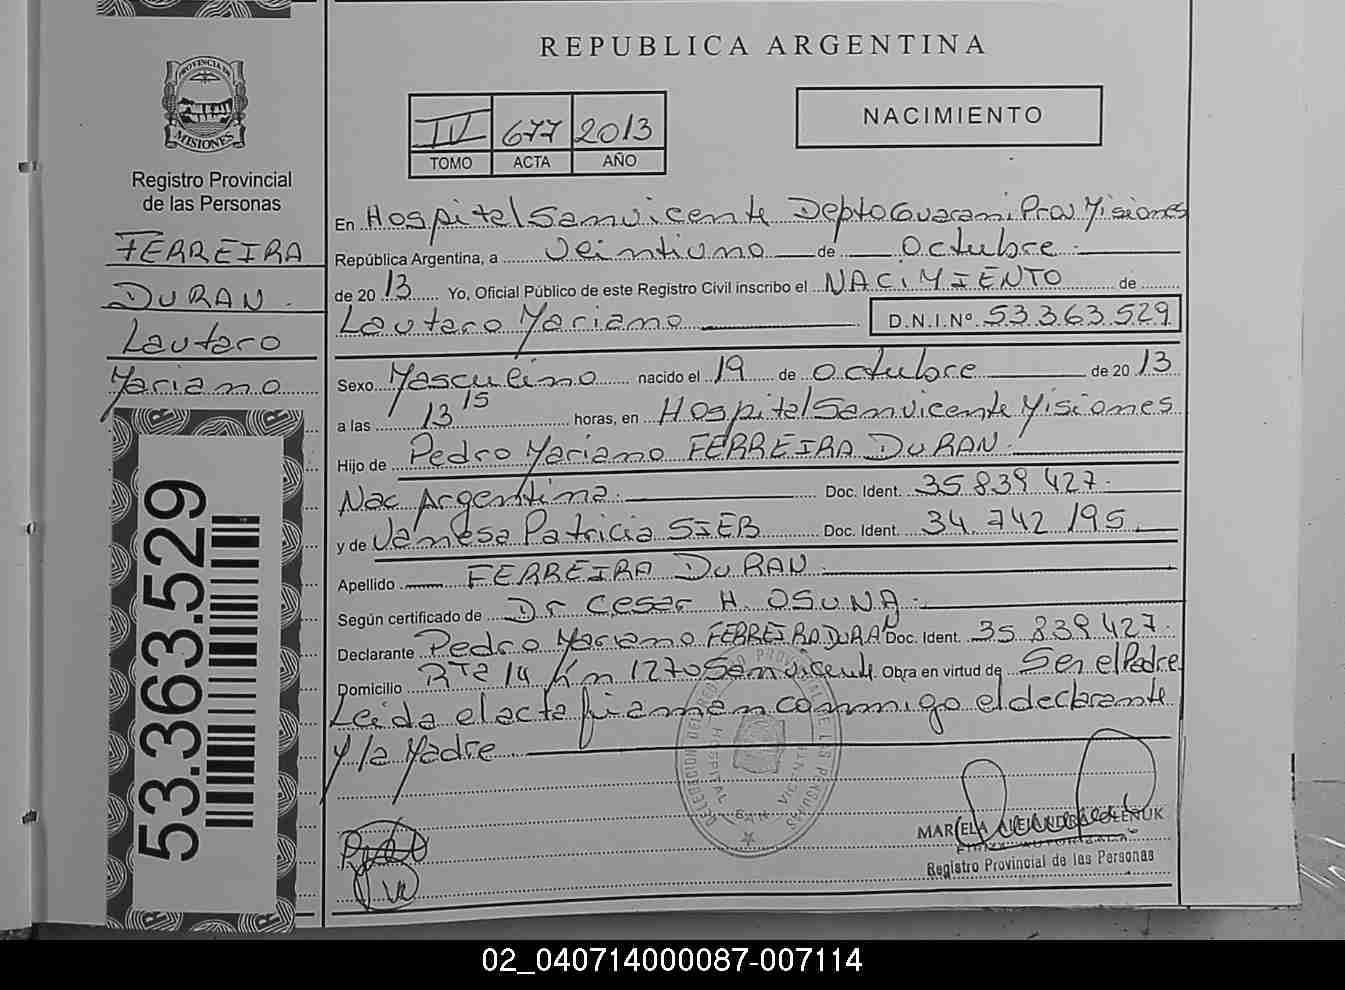 REPUBLICA ARGENTINA
PROVINCIA DE
MISIONES
Registro Provincial
de las Personas
FERREIRA
DURAN
Lautaro
Mariano
53.363.529
IV 677 2013
TOMO ACTA AÑO
NACIMIENTO
En Hospital San Vicente Depto Guarani Prov Misiones
República Argentina, a veintiuno de Octubre
de 2013 Yo, Oficial Público de este Registro Civil inscribo el NACIMIENTO de
Lautaro Mariano D.N.I.Nº 53 363 529
Sexo Masculino nacido el 19 de Octubre de 2013
a las 13 15 horas, en Hospital San Vicente Misiones
Hijo de Pedro Mariano FERREIRA DURAN
Nac Argentina. Doc. Ident. 35 839 427.
y de Vanesa Patricia SIEB Doc. Ident. 34 742 195
Apellido FERREIRA DURAN
Según certificado de Dr Cesar H. OSUNA
Declarante Pedro Mariano FERREIRA DURAN Doc. Ident. 35 839 427.
Domicilio RTa 14 Km 1270 San Vicente Obra en virtud de Ser el Padre
Leida el acta firman conmigo el declarante
y la Madre
MARIELA ALEJANDRA
Registro Provincial de las Personas
02_040714000087-007114